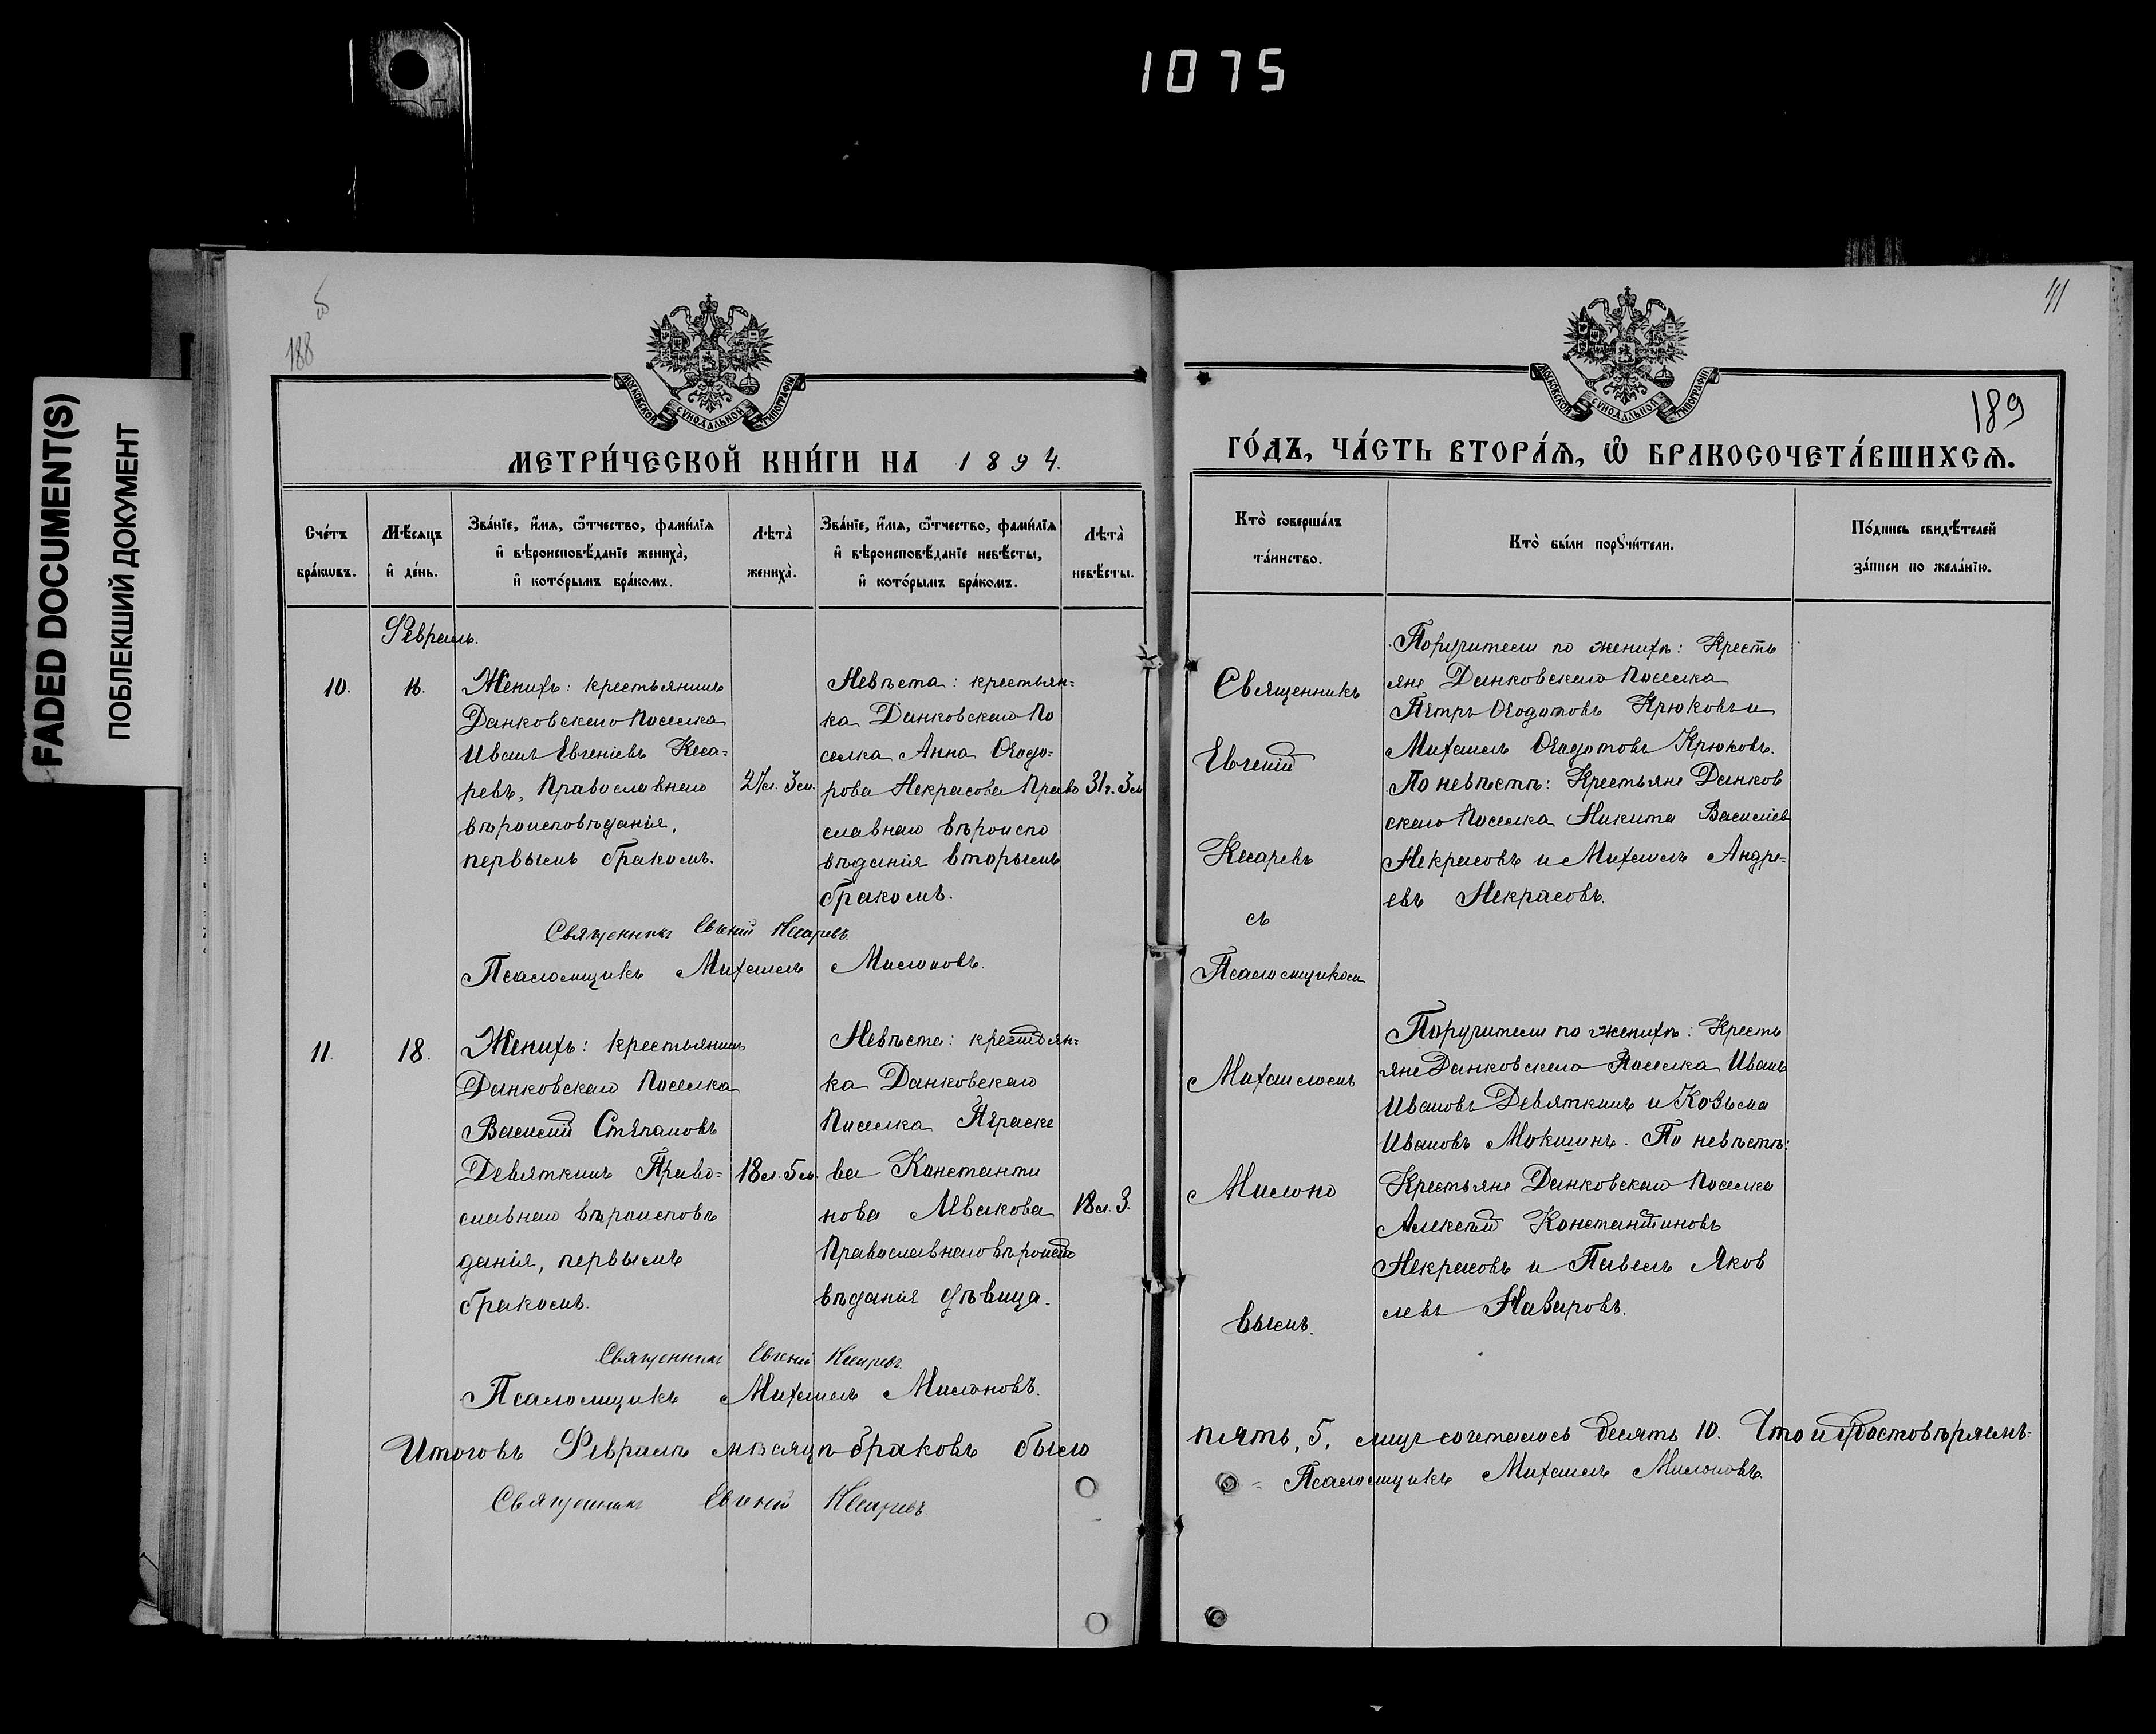 1075
FADED DOCUMENT(S)
ПОБЛЕКШИЙ ДОКУМЕНТ
188
МОСКОВСКОЙ СѴНОДАЛЬНОЙ ТИПОГРАФІИ
МЕТРИ́ЧЕСКОЙ КНИ́ГИ НА 1894.
Сче́тъ бра́кωвъ.
Мѣ́сяцъ и҆ де́нь.
Зва́нїе, и҆́мѧ, ѻ҆́тчество, фами́лїѧ
и҆ вѣроисповѣ́данїе жениха̀,
и҆ кото́рымъ бра́комъ.
Лѣта̀ жениха̀.
Зва́нїе, и҆́мѧ, ѻ҆́тчество, фами́лїѧ
и҆ вѣроисповѣ́данїе невѣ́сты,
и҆ кото́рымъ бра́комъ.
Лѣта̀ невѣ́сты.
Февраль.
10.
Женихъ: крестьянинъ
Данковскаго Поселка
Иванъ Евгеніевъ Кеса-
ревъ, Православнаго
вѣроисповѣданія,
первымъ бракомъ.
3 м.
Невѣста: крестьян=
ка Данковскаго По
селка Анна Ѳеодо=
рова Некрасова Право
славнаго вѣроиспо
вѣданія вторымъ
бракомъ.
31 г. 3 м
Священникъ Евгеній Кесаревъ.
Псаломщикъ Михаилъ Милоновъ.
11.
18.
Женихъ: крестьянинъ
Данковскаго Поселка
Василій Степановъ
Девяткинъ Право=
славнаго вѣроисповѣ
данія, первымъ
бракомъ.
18 л. 5 м.
Невѣста: крестьян=
ка Данковскаго
Поселка Параске
ва Константи
нова
Православнаго вѣроиспо
вѣданія дѣвица.
18 л. 3.
Священникъ Евгеній Кесаревъ.
Псаломщикъ Михаилъ Милоновъ.
Итого въ Февралѣ мѣсяцѣ браковъ было
Священникъ Евгеній Кесаревъ
МОСКОВСКОЙ СѴНОДАЛЬНОЙ ТИПОГРАФІИ
189
ГО́ДЪ, ЧА́СТЬ ВТОРА́Ѧ, Ѽ БРАКОСОЧЕТА́ВШИХСѦ.
Кто̀ соверша́лъ
та́инство.
Кто̀ бы́ли порꙋчи́тели.
По́дпись свидѣ́телей
за́писи по жела́нїю.
Священникъ
Евгеній
Кесаревъ
съ
Псаломщикомъ
Михаиломъ
Милоно
вымъ.
Поручители по женихѣ: Кресть
яне Данковскаго Поселка
Петръ Ѳеодотовъ Крюковъ и
Михаилъ Ѳеодотовъ Крюковъ.
По невѣстѣ: Крестьяне Данков
скаго Поселка Никита Василіев
Некрасовъ и Михаилъ Андре-
евъ Некрасовъ.
Поручители по женихѣ: Кресть
яне Данковскаго Поселка Иванъ
Ивановъ Девяткинъ и Козьма
Ивановъ Мокшинъ. По невѣстѣ:
Крестьяне Данковскаго Поселка
Алексѣй Константиновъ
Некрасовъ и Павелъ Яков
левъ Назаровъ.
пять, 5, лицъ сочеталось десять 10. Что и удостовѣряемъ-
Псаломщикъ Михаилъ Милоновъ.